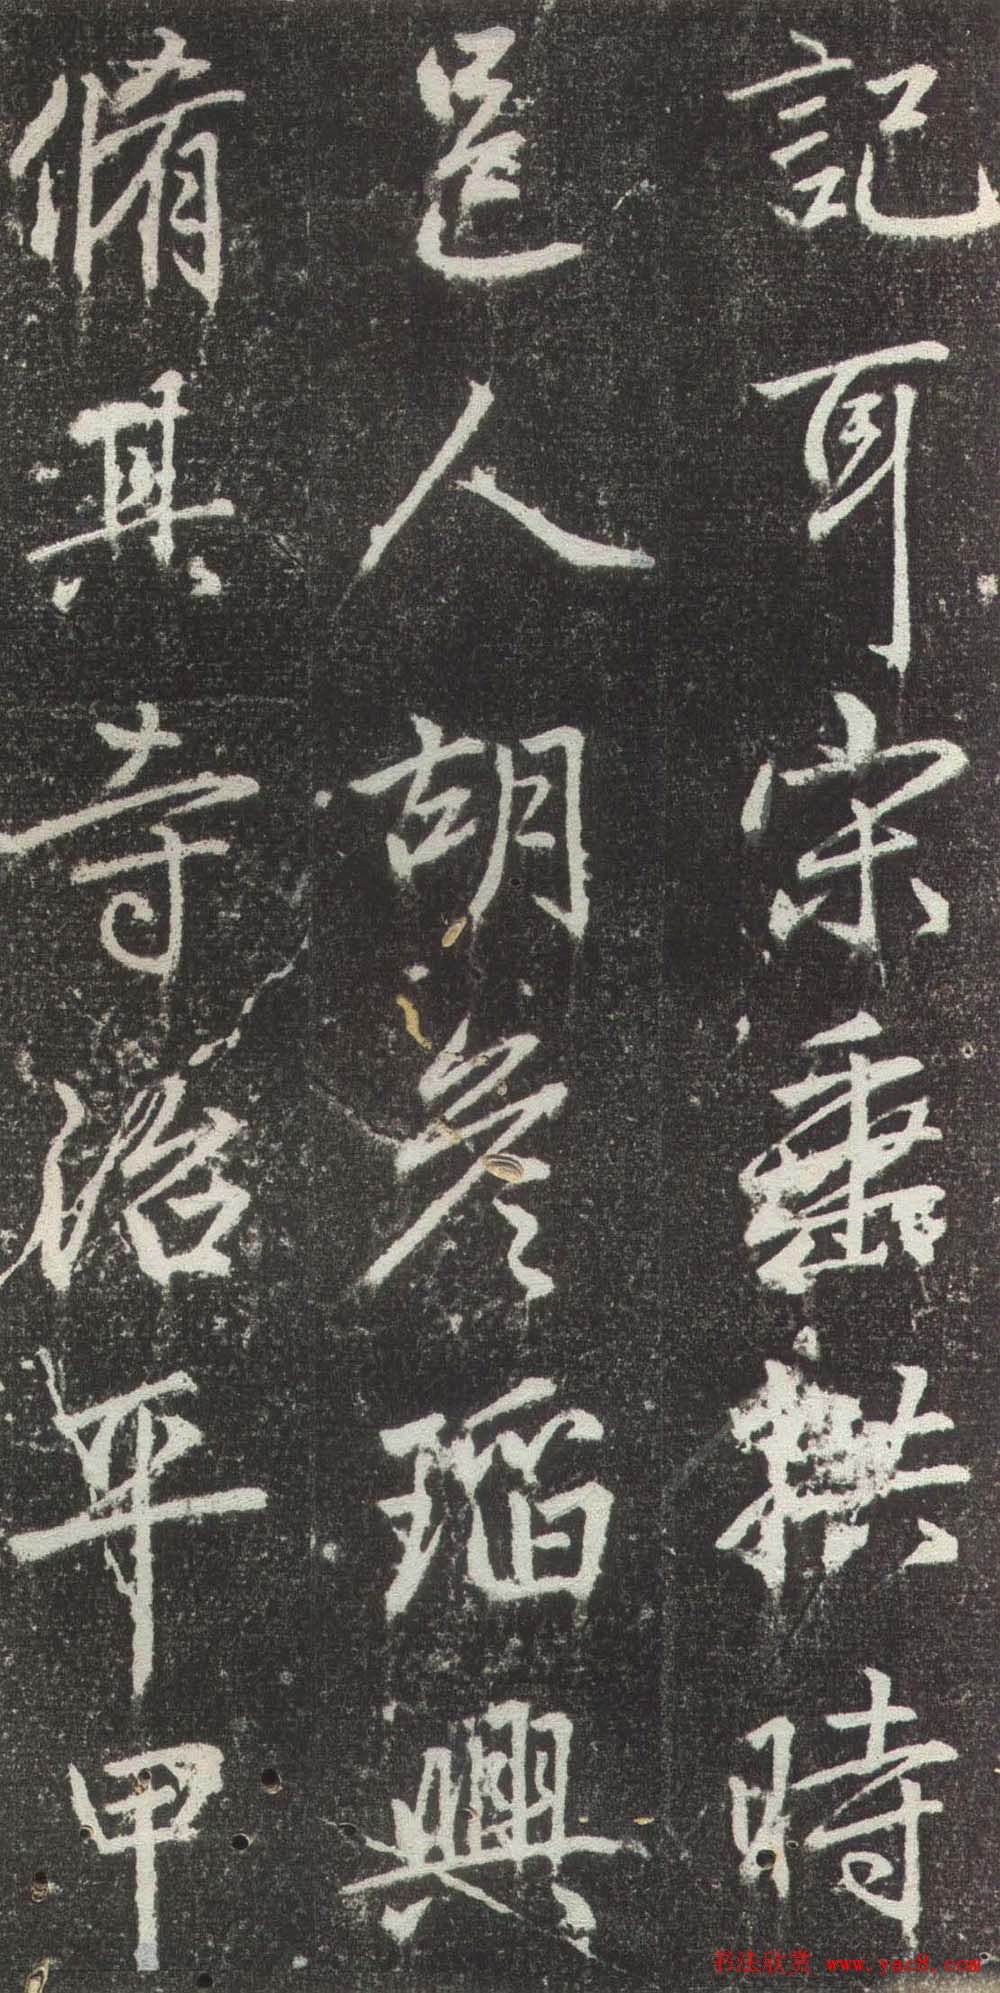 記耳宋垂拱時
邑人胡彦瑫興
脩其寺治平甲
书法欣赏 www.yac8.com